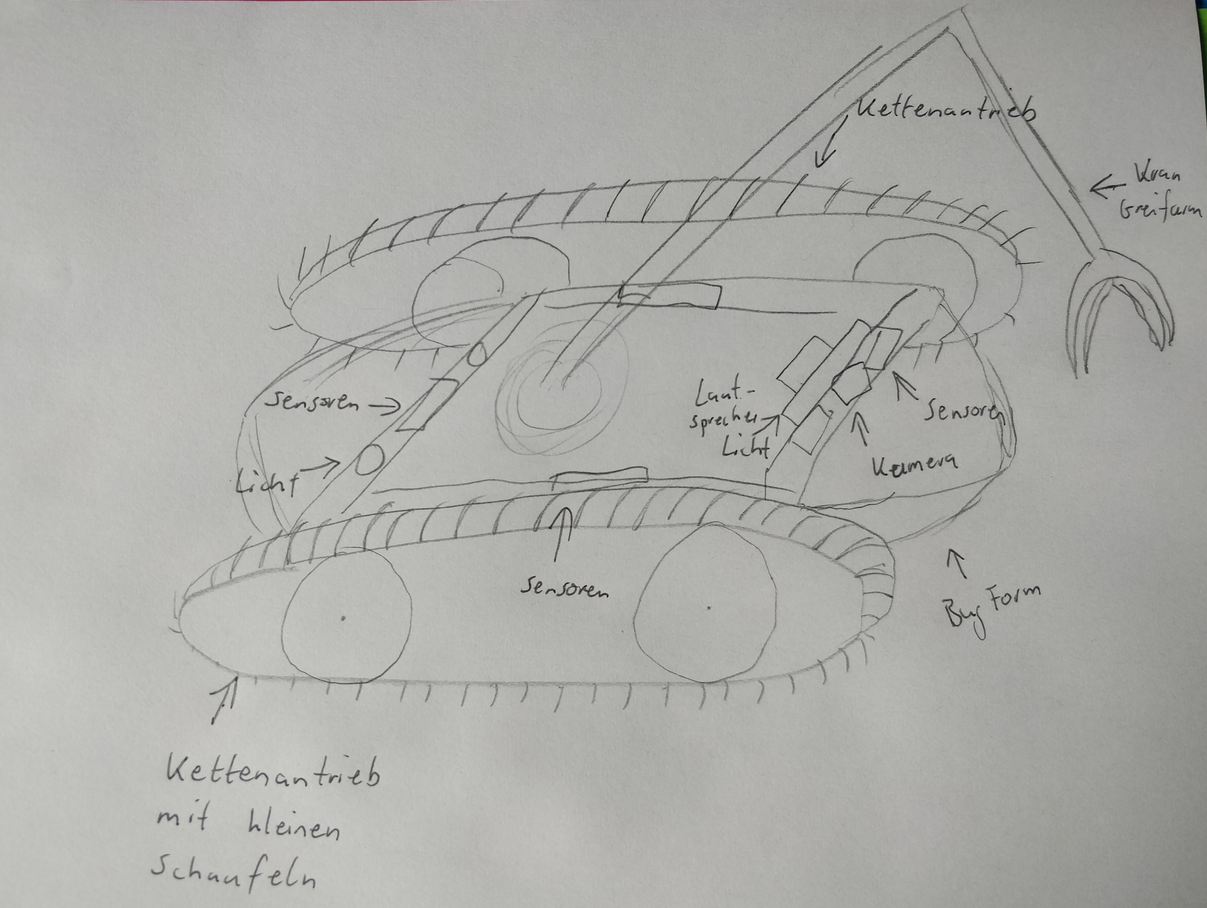 Kettenantrieb
Kran
Greifarm
Sensoren
Licht
Laut-
sprecher
Licht
Sensoren
Kamera
Sensoren
Bug Form
Kettenantrieb
mit kleinen
Schaufeln